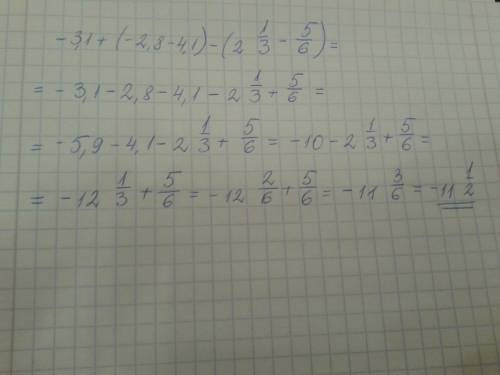 -3,1 + (-2,8-4,1) - (2 1/3 - 5/6) =
= -3,1-2,8-4,1-2 1/3 + 5/6 =
= -5,9-4,1-2 1/3 + 5/6 = -10-2 1/3 + 5/6 =
= -12 1/3 + 5/6 = -12 2/6 + 5/6 = -11 3/6 = -11 1/2